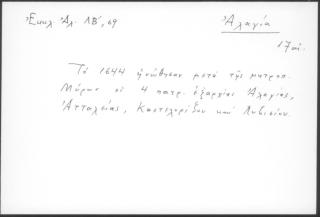 Ἐκκλ. Ἀλ. ΛΒ′, 69
Ἀλαγία
17 αἰ.
Τὸ 1644 ἡνώθησαν μετὰ τῆς μητροπ.
Μύρων οἱ 4 πατρ. ἐξαρχίαι Ἀλαγίας,
Ἀτταλείας, Καστελορίζου καὶ Λιβισίου.